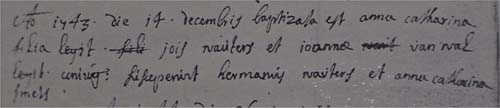 cto 1743. die 14. decembris baptizata est anna catharina
filia legit. jois naiters et joannæ van wal
legit. coniug: susceperunt hermanus naiters et anna catharina
smets